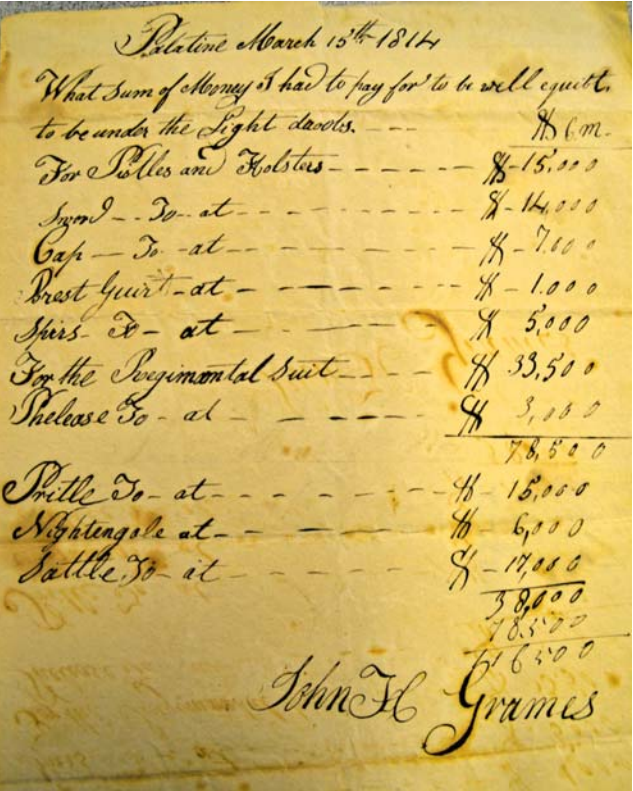 Palatine March 15th 1814
What Sum of Money I had to pay for to be well equibt.
to be under the Light
$ C m.
For Pistles and Holsters - - - - - - $ - 15,000
Sword - - To - at - - - - - - - - - $ - 14,000
Cap - To - at - - - - - - - - - $ - 7.000
Brest Guirt - at - - - - - - - - $ - 1.000
Spirs - To - at - - - - - - - $ 5,000
For the Regimantal Suit - - - - $ 33,500
Phelease To - at - - - - - - - $ 3,000
78,500
Pritle To - at - - - - - - - - $ - 15,000
Nightengale at - - - - - - - $ - 6,000
Sattle To - at - - - - - - - $ - 17,000
38,000
78.500
116500
John H Grames